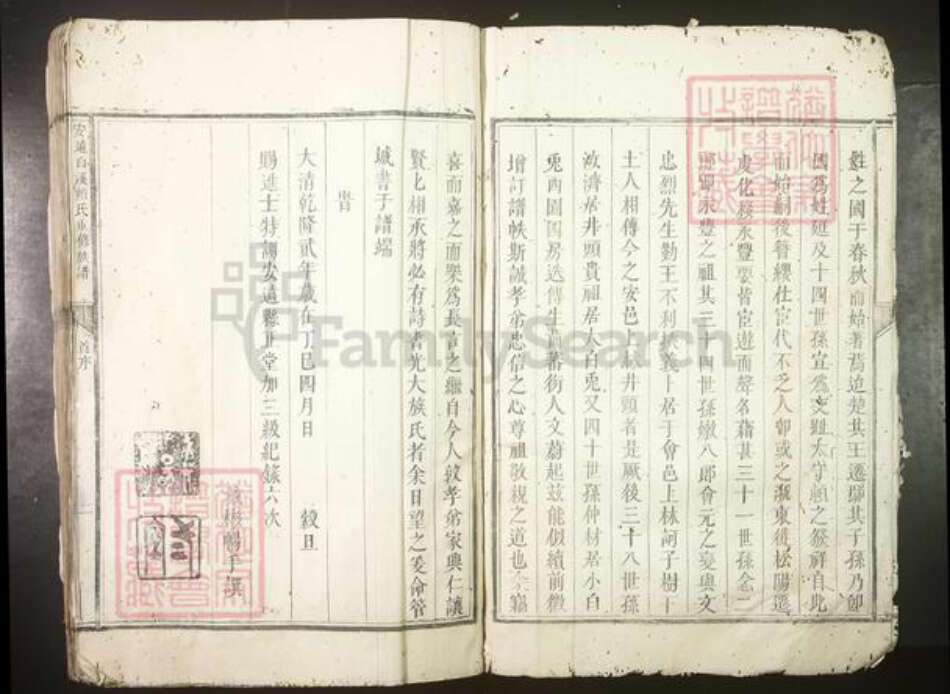 姓之國于春秋而始著焉迨楚共王遷鄢其子孫乃卽
國爲姓延及十四世孫宣爲交趾太守賴之發祥自此
而始嗣後簪纓仕宦代不乏人卽或之浙東徙松陽遷
虔化發永豐要皆宦遊而聲名藉甚三十一世孫念二
郎卽永豐之祖其三十四世孫嫩八郎會元之變與文
忠烈先生勤王不利扶義卜居于會邑上林詞子樹十
士人相傳今之安邑 井頭者是厥後三十八世孫
汝濟居井頭貴祖居大白兎又四十世孫仲材居小白
兎四圍四房迭傳生 蕃衍人文蔚起玆能似續前徽
增訂譜帙斯誠孝弟忠信之心尊祖敬親之道也余竊
喜而嘉之而樂爲長言之繼自今人敦孝弟家興仁讓
賢七相承將必有 光大族氏者余日望之爰命管
城書于譜端
旹
大清乾隆貳年歲在丁巳四月日 穀旦
賜進士特調安遠縣正堂加三級紀錄六次
手撰
安遠白溪賴氏重修族譜
首序
FamilySearch